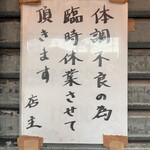 体調不良の為
臨時休業させて
頂きます
店主